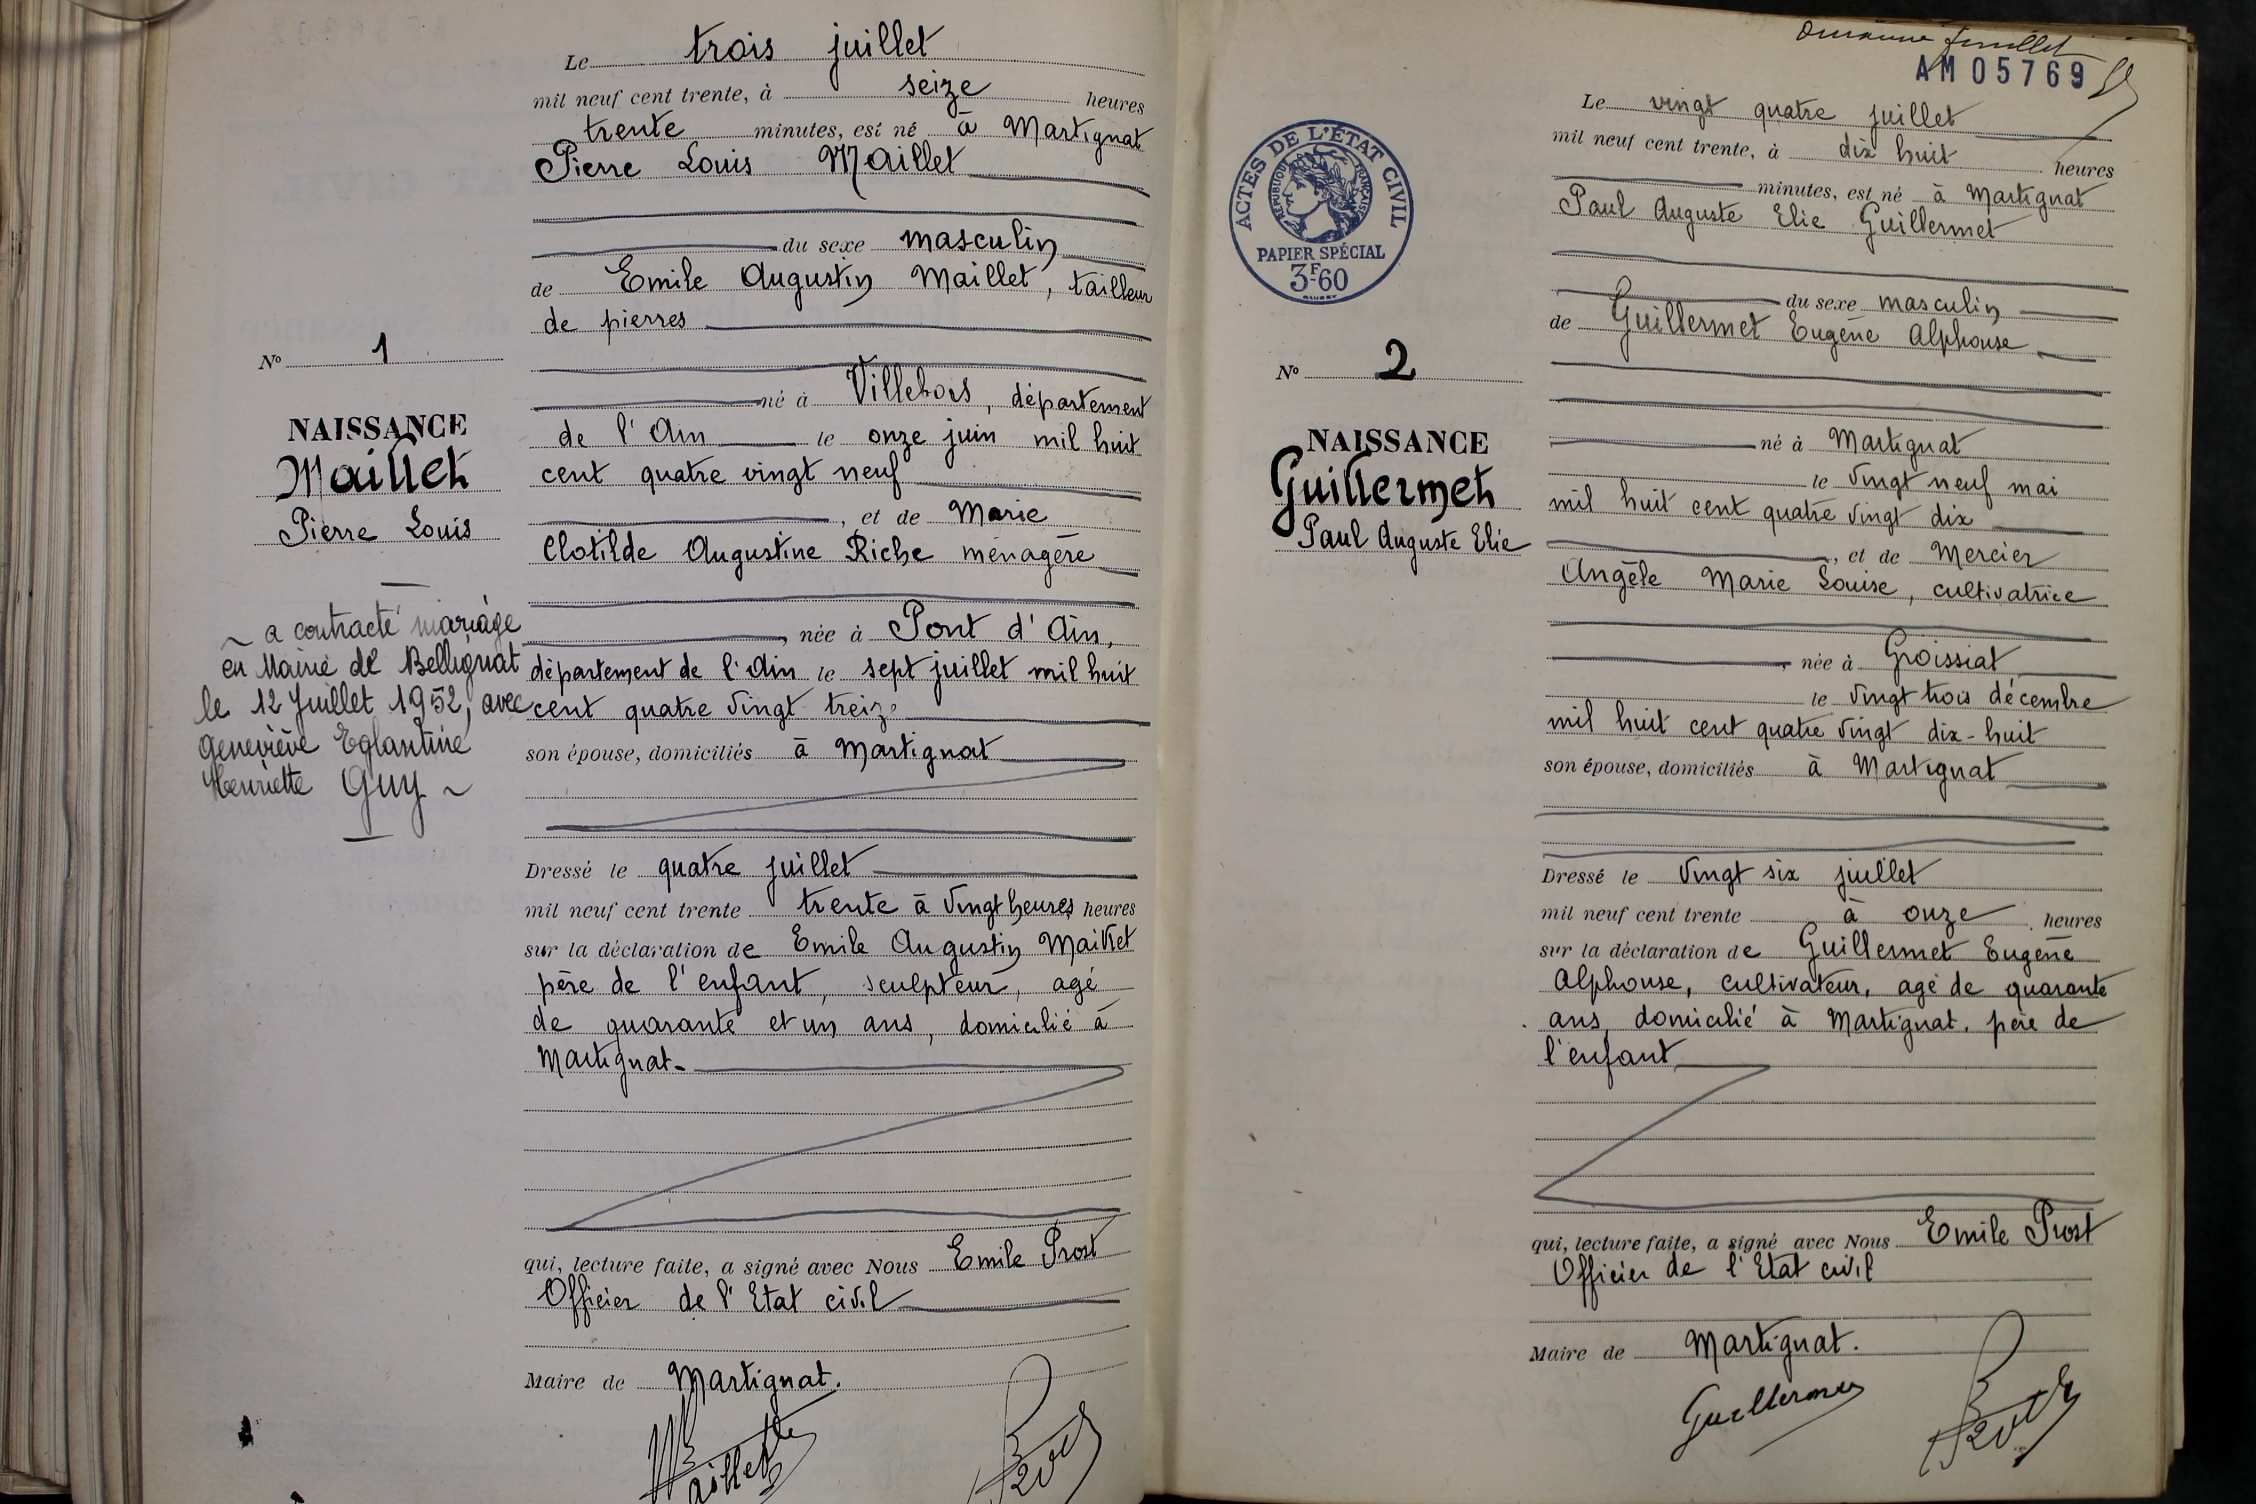 Le trois juillet
mil neuf cent trente, à seize heures
trente minutes, est né à Martignat
Pierre Louis Maillet
du sexe masculin
de Emile Augustin Maillet, tailleur
de pierres
né à Villebois, département
de l'Ain le onze juin mil huit
cent quatre vingt neuf
, et de Marie
Clotilde Augustine Riche ménagère
, née à Pont d'Ain,
département de l'Ain le sept juillet mil huit
cent quatre vingt treize
son épouse, domiciliés à Martignat
Dressé le quatre juillet
mil neuf cent trente trente à vingt heures heures
sur la déclaration de Emile Augustin Maillet
père de l'enfant, sculpteur, agé
de quarante et un ans, domicilié à
Martignat.
qui, lecture faite, a signé avec Nous Emile Prost
Officier de l'Etat civil
Maire de Martignat.
Maillet
Prost
Nº 1
NAISSANCE
Maillet
Pierre Louis
a contracté mariage
en Mairie de Bellignat
le 12 Juillet 1952, avec
Geneviève Eglantine
Henriette Guy
feuillet
AM 05769
ACTES DE L'ÉTAT CIVIL
RÉPUBLIQUE FRANÇAISE
PAPIER SPÉCIAL
3F.60
Nº 2
NAISSANCE
Guillermet
Paul Auguste Elie
Le vingt quatre juillet
mil neuf cent trente, à dix huit heures
minutes, est né à Martignat
Paul Auguste Elie Guillermet
du sexe masculin
de Guillermet Eugène Alphonse
né à Martignat
le vingt neuf mai
mil huit cent quatre vingt dix
, et de Mercier
Angèle Marie Louise, cultivatrice
née à Groissiat
le vingt trois décembre
mil huit cent quatre vingt dix-huit
son épouse, domiciliés à Martignat
Dressé le vingt six juillet
mil neuf cent trente à onze heures
sur la déclaration de Guillermet Eugène
Alphonse, cultivateur, agé de quarante
ans, domicilié à Martignat. père de
l'enfant
qui, lecture faite, a signé avec Nous Emile Prost
Officier de l'Etat civil
Maire de Martignat.
Guillermet
Prost